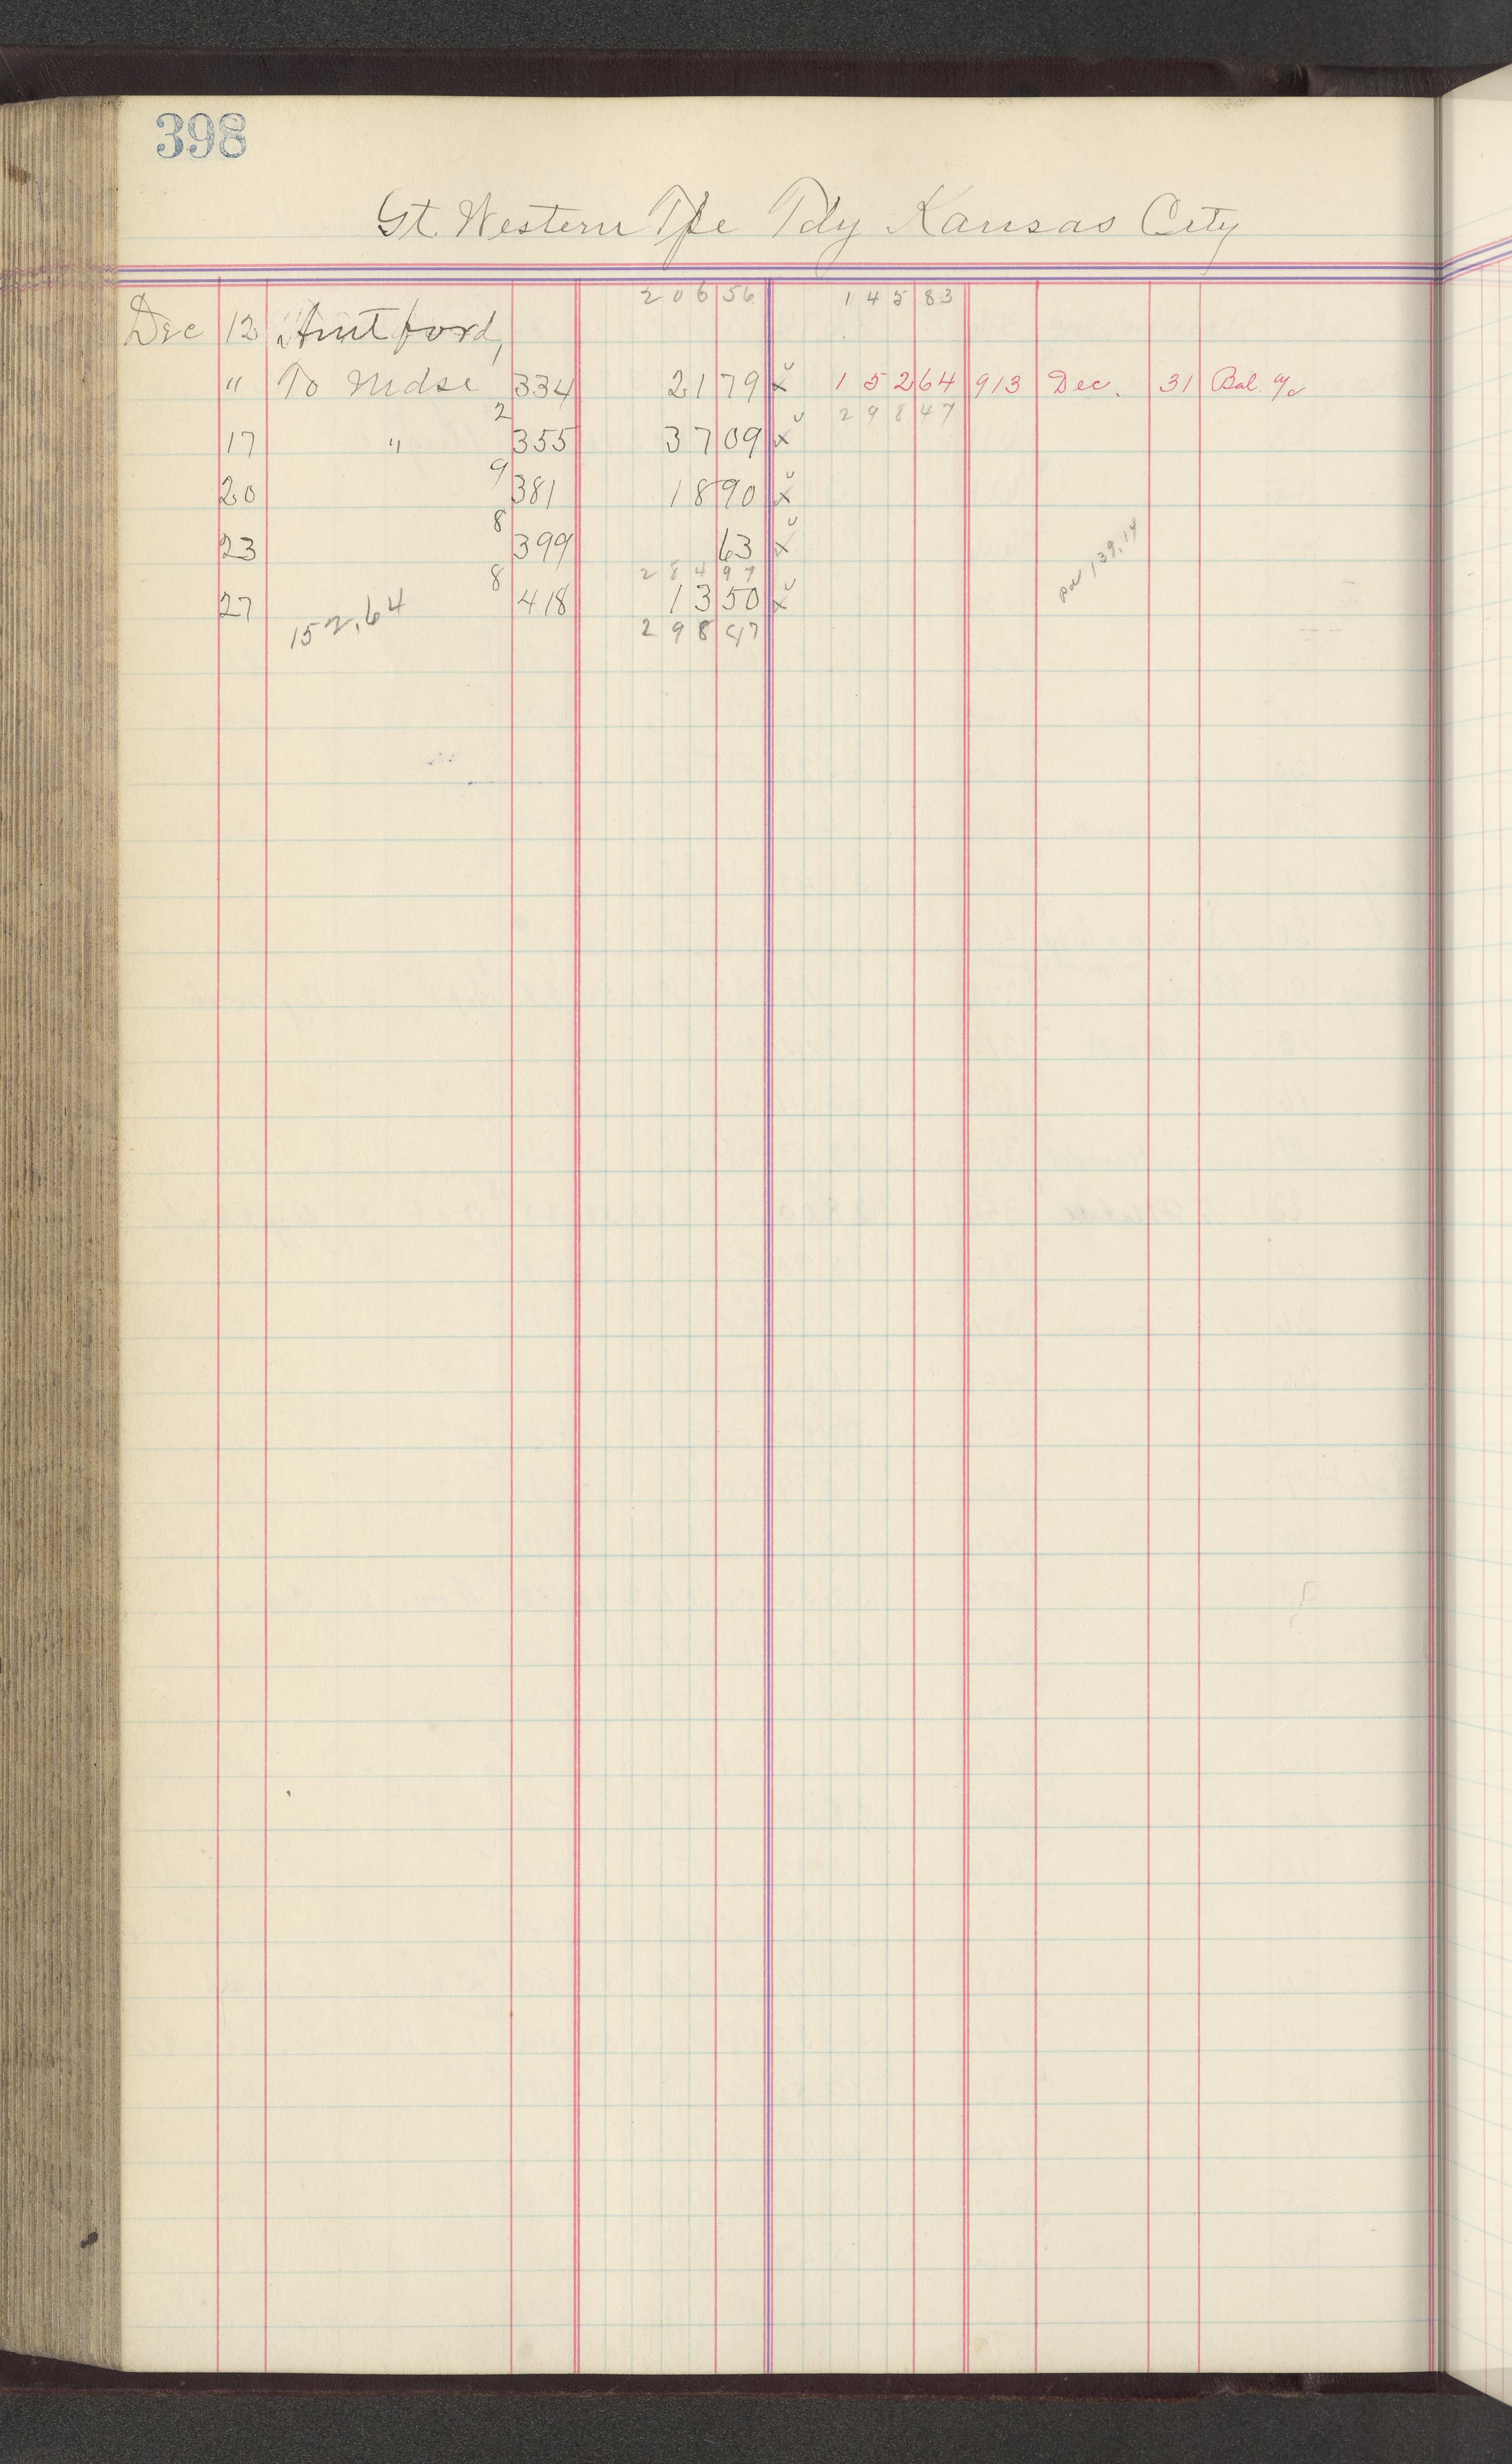 398
Gt. Western Tpe Fdy Kansas City
206 56 145 83
Dec 12 Amt ford,
" To Mdse 334 21 79 x 152 64 913 Dec. 31 Bal. a/c
2 298 47
17 " 355 37 09 x
9
20 381 18 90 x
8
23 399 63 x
284 97
8
27 418 13 50 x
152.64 298 47
pd 139.14